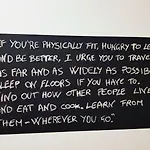 F YOU'RE PHYSICALLY FIT, HUNGRY TO LE
ND BE BETTER, I URGE YOU TO TRAVE
AS FAR AND AS WIDELY AS POSSIB
LEEP ON FLOORS IF YOU HAVE TO.
IND OUT HOW OTHER PEOPLE LIVE
ND EAT AND COOK. LEARN FROM
HEM - WHEREVER YOU GO."